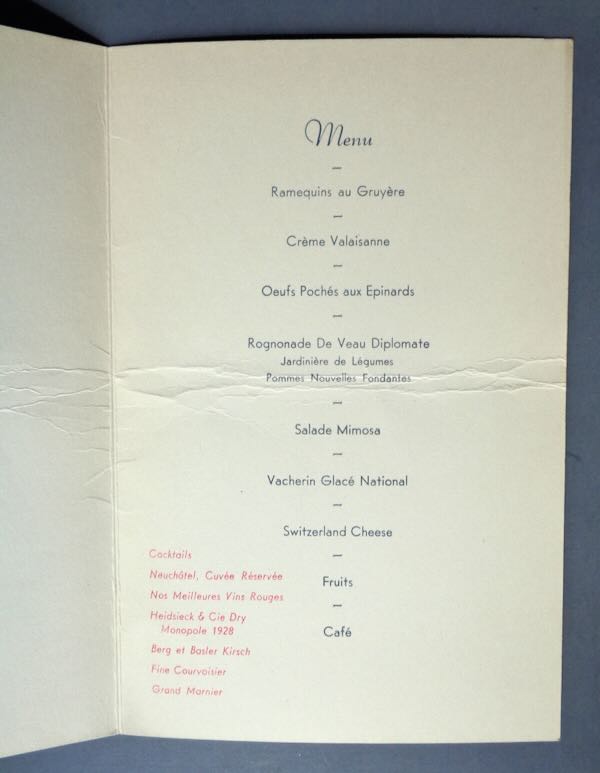 Menu
Ramequins au Gruyère
Crème Valaisanne
Oeufs Pochés aux Epinards
Rognonade De Veau Diplomate
Jardinière de Légumes
Pommes Nouvelles Fondantes
Salade Mimosa
Vacherin Glacé National
Switzerland Cheese
Fruits
Café
Cocktails
Neuchâtel, Cuvée Réservée
Nos Meilleures Vins Rouges
Heidsieck & Cie Dry
Monopole 1928
Berg et Basler Kirsch
Fine Courvoisier
Grand Marnier